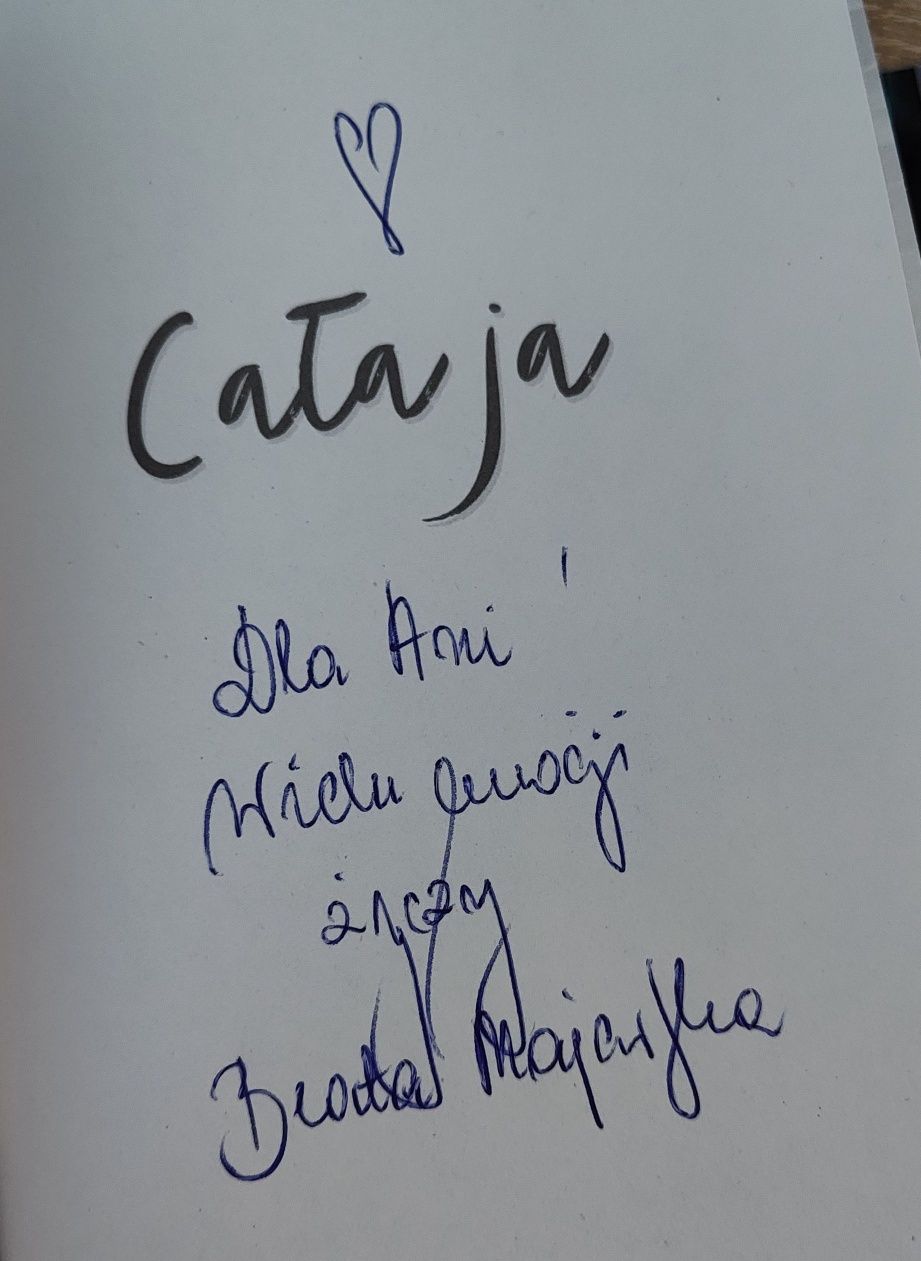 Cała ja
Dla Ani
Wielu emocji
życzy
Beata Majewska